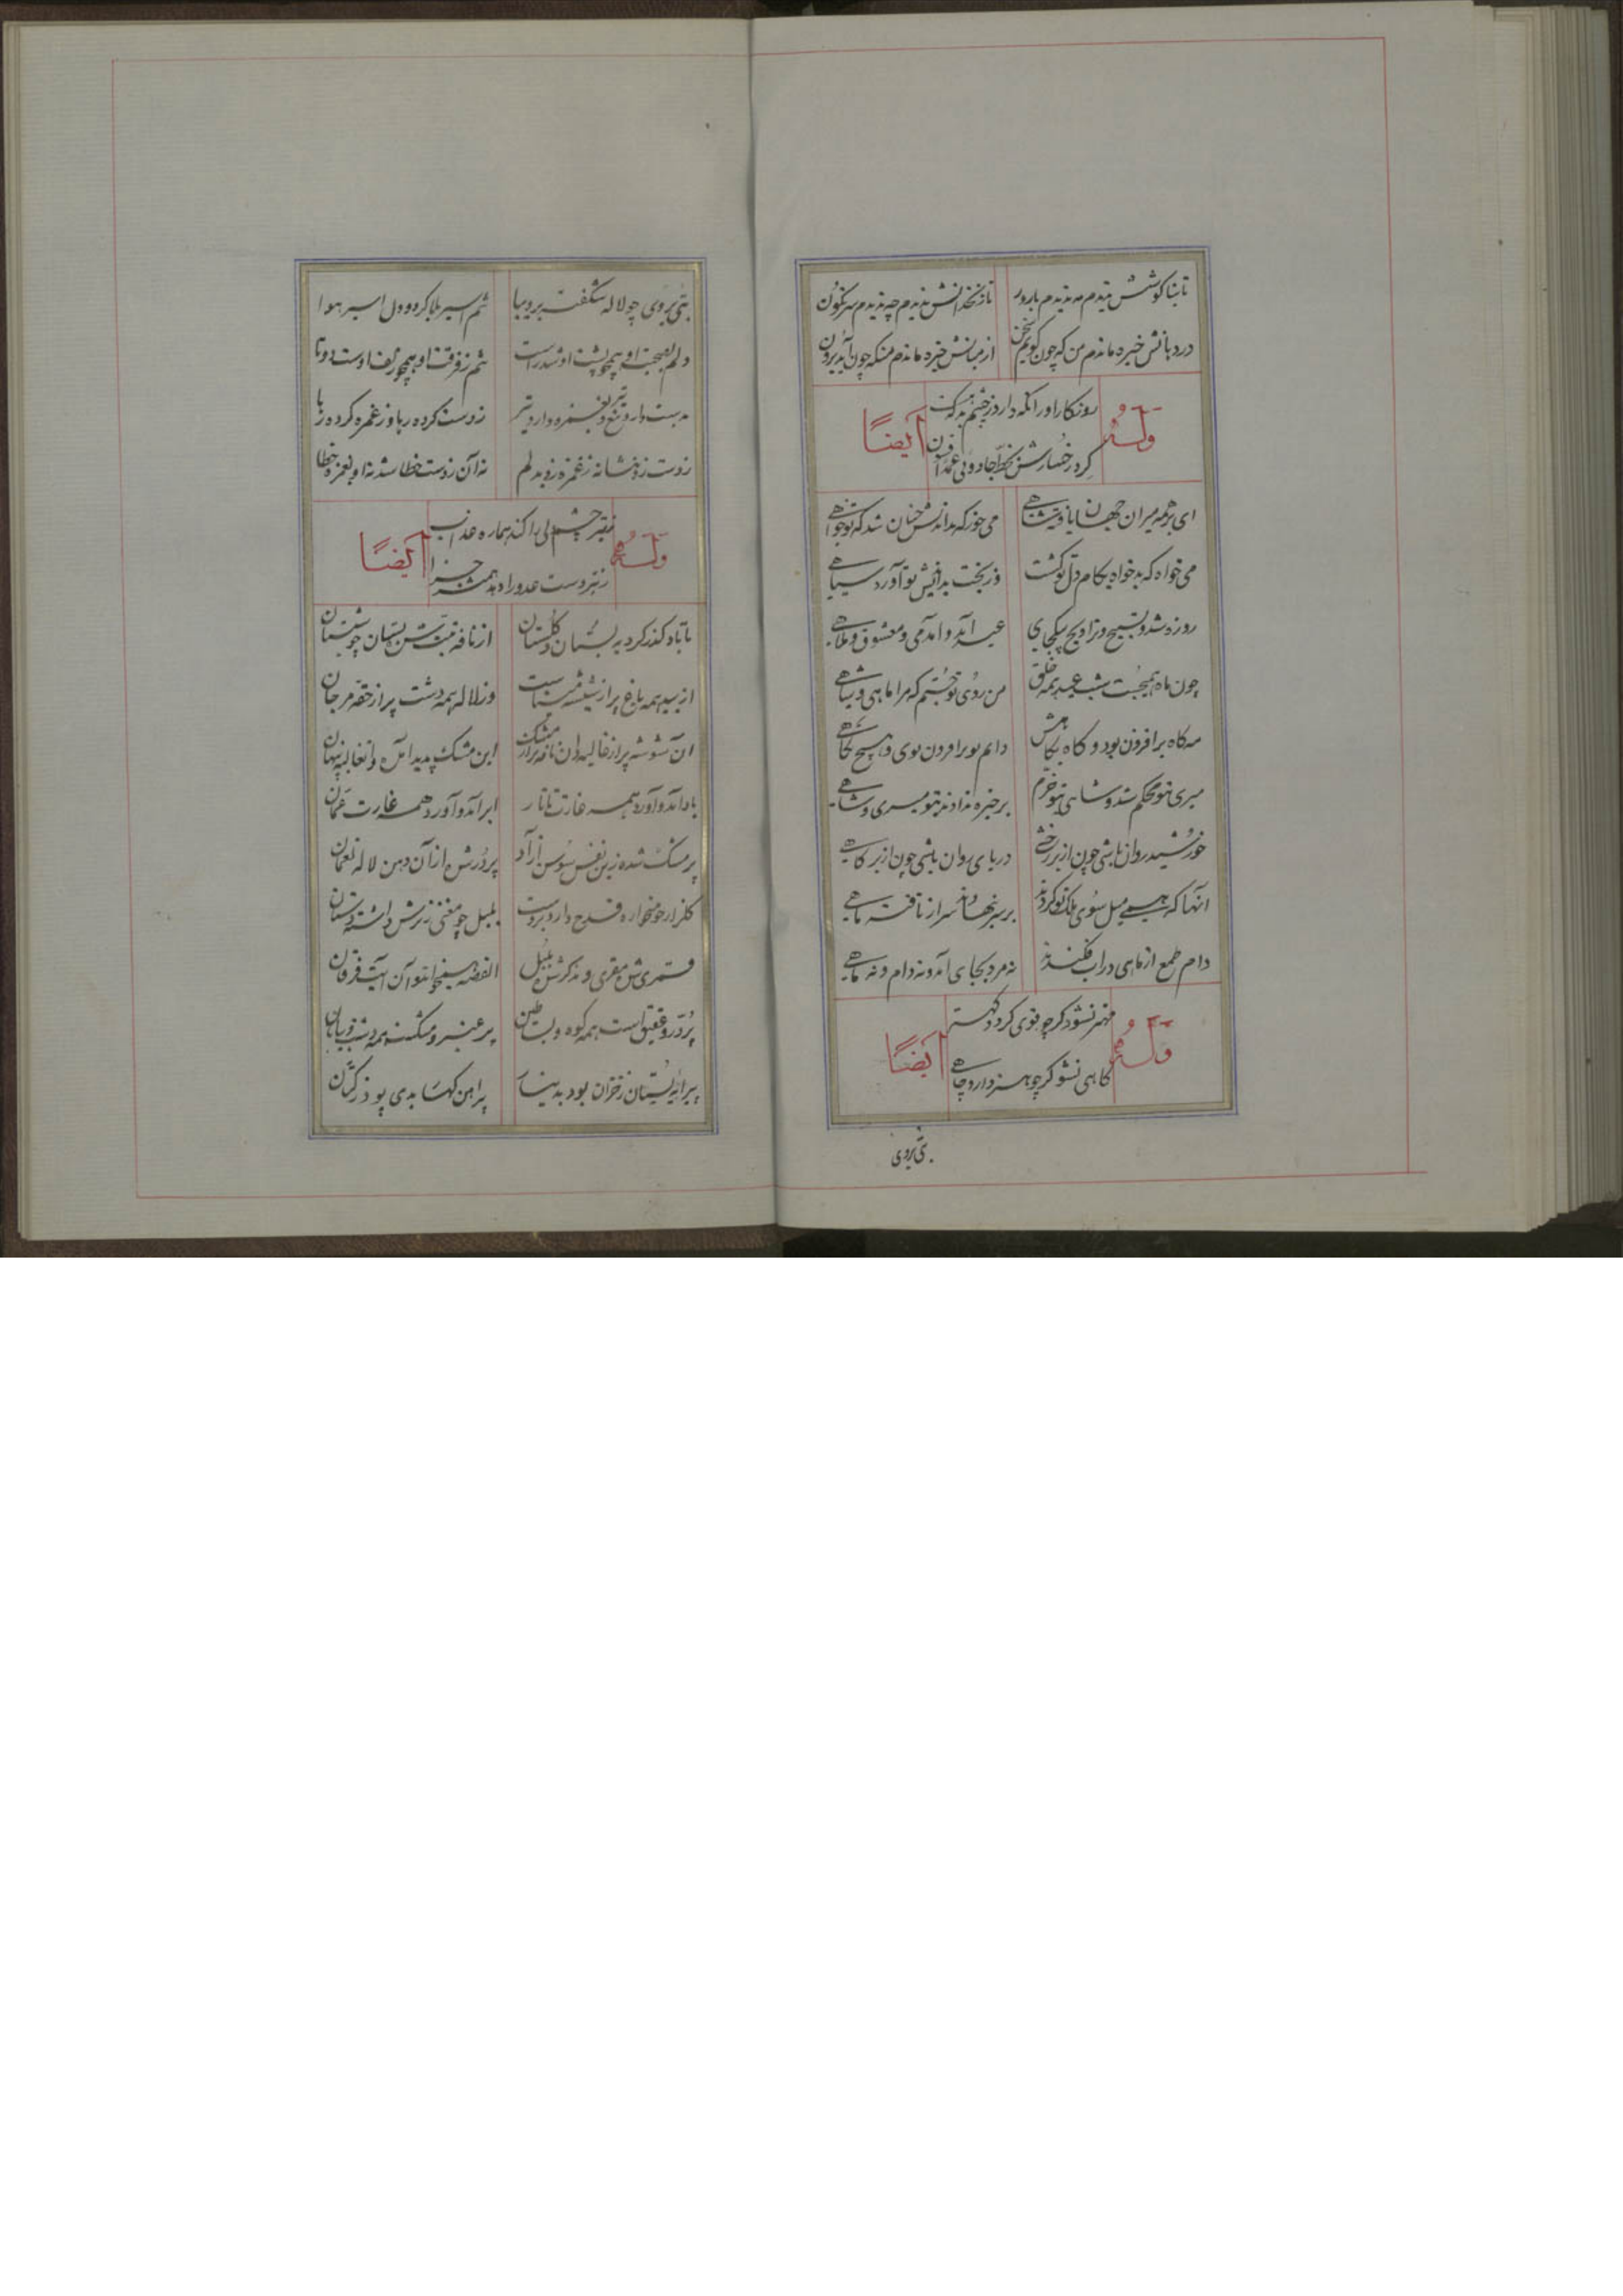 تابناکوشش ندیدم مه ندیدم بارور تا زنخدانش ندیدم چه ندیدم سرنکون
در دهانش خیره ماندم من که چون کویم سخن از میانش خیره ماندم منکه چون آید برون
روزکار او را نکه دارد ز چشم بد که هست
وله ایضاً
کرد رخسارش بخط جادوئی
ای بر همه میران جهان یافته شاهی می خور که بداندیش چنان شد که تو خواهی
می خواه که بدخواه بکام دل تو کشت وز بخت بداندیش تو آورد سیاهی
روزه شد و تسبیح و تراویح بیکجای عید آمد و آمد می و معشوق و ملاهی
چون ماه همیجست شب عید همه خلق من روی تو جستم که مرا ماهی و شاهی
مه کاه برافزون بود و کاه بکاهش دایم تو برافزون بوی و هیچ نکاهی
میری بتو محکم شد و شاهی بتو خرم بر خیره ندادند بتو میری و شاهی
خورشید روان باشی چون از بر رخشی دریای روان باشی چون از بر کاهی
آنها که همه میل سوی ملک تو کردند بر سر نهاد سر از تافته ماهی
دام طمع از ماهی در آب فکندند نه مرد بجای آمد و نه دام و نه ماهی
مهتر نشود کرچه قوی کردد کهتر
وله ایضاً
کاهی نشود کرچه هنر دارد چاهی
بتی بروی
بتی بروی چو لاله شکفته بر دیبا تنم اسیر بلا کرد و دل اسیر هوا
دلم بصحبت او همچو پشت او شد راست تنم ز فرقت او همچو زلف اوست دوتا
بدست دارد تیر و بغمزه دارد تیر ز دست کرده رها و ز غمزه کرده رها
ز دست زد بنشانه ز غمزه زد بدلم نه آن ز دست خطا شد نه او بغمزه خطا
بتیر چشم ولی را کند هماره عذاب
وله ایضاً
بتیر دست عدو را دهد همیشه جزا
تا باد کذر کرد به بستان و کلستان از نافه تبت شن بستان چو شبستان
از بید همه باغ پر از شیشه میناست وز لاله همه دشت پر از حقه مرجان
آن شوشه پر از غالیه وان نافه پر از مشک این مشک پدید آمد وان غالیه پنهان
باد آمد و آورد همه غارت تاتار ابر آمد و آورد همه غارت عمان
پر مشک شده زین نفس سوسن آزاد پر در شده از آن دهن لاله نعمان
کلزار چو میخواره قدح دارد بر دست بلبل چو مغنی زبرش داشته دستان
قمری شن مقری و مذکر شن بلبل القصه همیخواند و آن آیت فرقان
پر در و عقیق است همه کوه و بساطین پر عنبر و مشکست همه دشت و بیابان
پیرایه بستان ز خزان بود بدینسار پیراهن کهسا بدی پود ز کتان